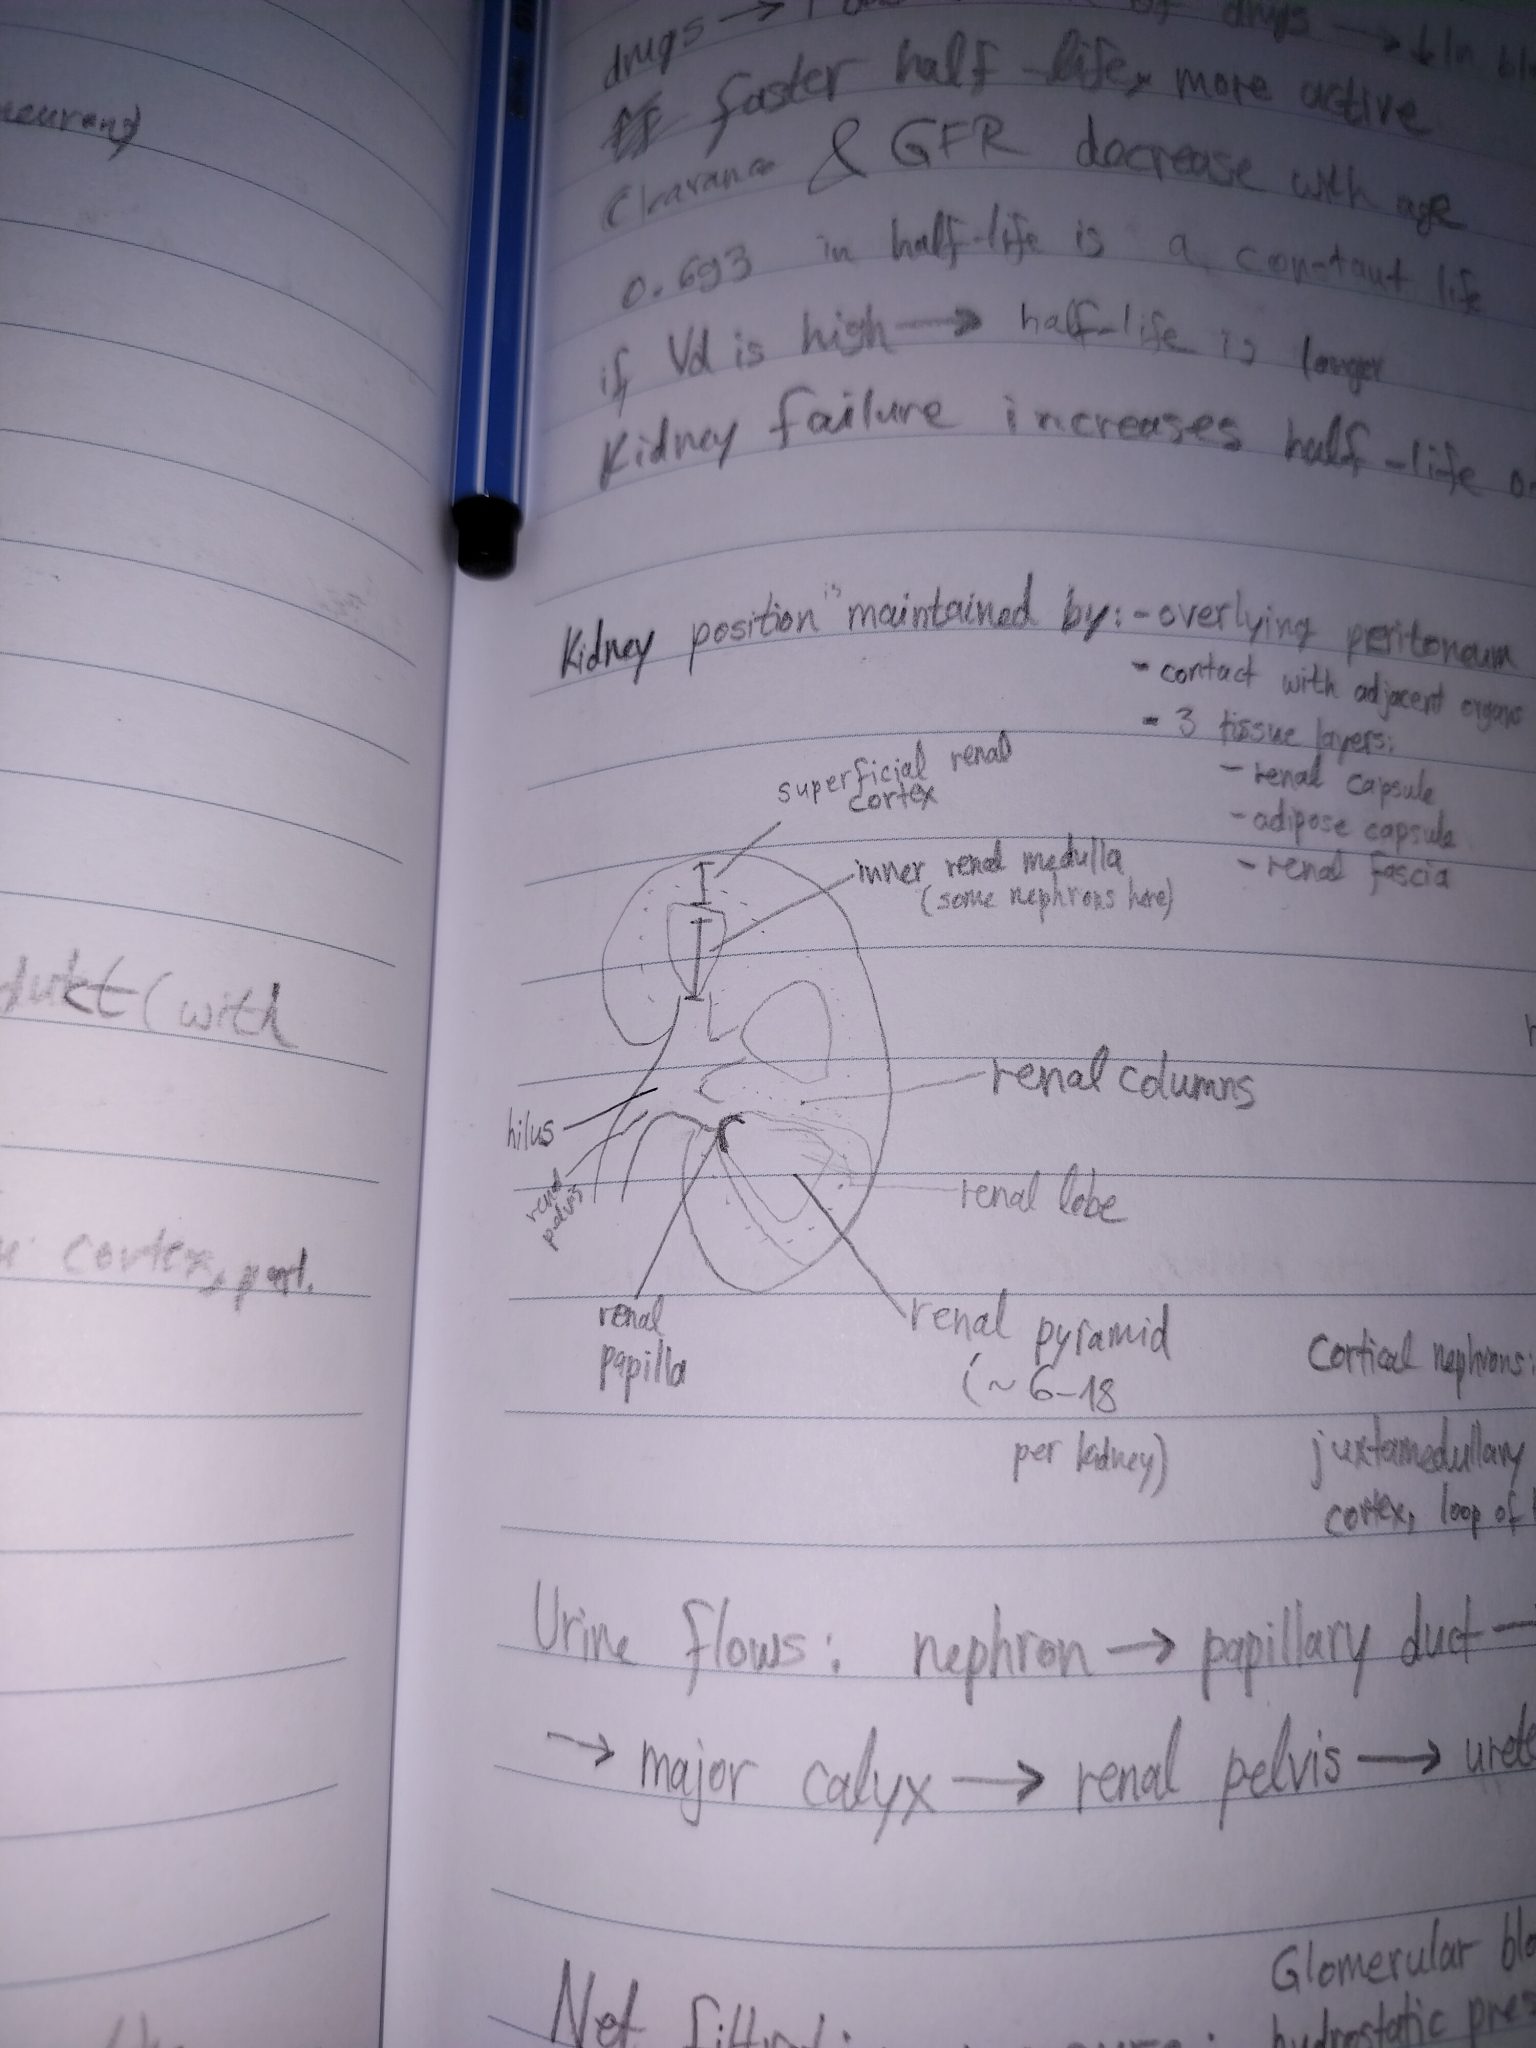 neurons)
dukt (with
cortex, part.
drugs → of drugs → ↓ In
faster half-life, more active
Clearance & GFR decrease with age
0.693 in half-life is a constant life
if Vd is high → half-life is longer
Kidney failure increases half-life
Kidney position is maintained by: - overlying peritoneum
- contact with adjacent organs
- 3 tissue layers:
- renal capsule
- adipose capsule
- renal fascia
superficial renal
cortex
inner renal medulla
(some nephrons here)
renal columns
hilus
renal
pelvis
renal lobe
renal
papilla
renal pyramid
(~ 6-18
per kidney)
Cortical nephrons:
juxtamedullary
cortex, loop of
Urine flows: nephron → papillary duct →
→ major calyx → renal pelvis → urete
Glomerular blo
Net
hydrostatic pres